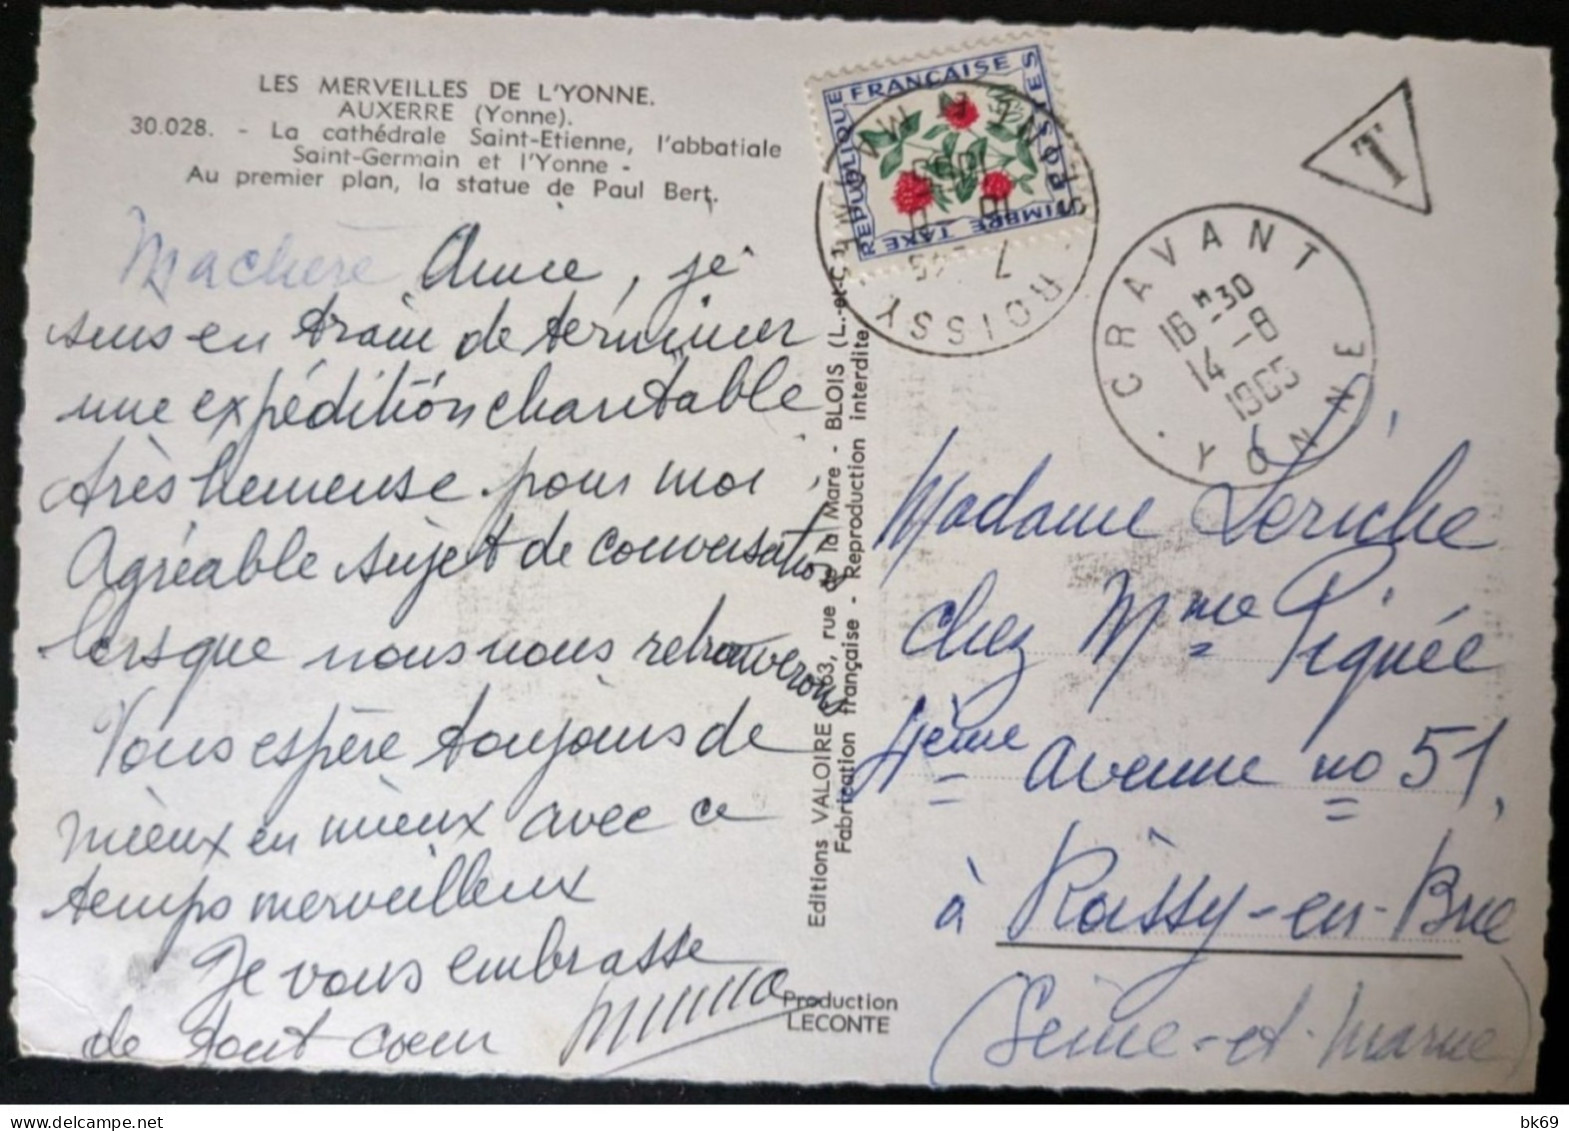 LES MERVEILLES DE L'YONNE.
AUXERRE (Yonne).
30.028. - La cathédrale Saint-Etienne, l'abbatiale
Saint-Germain et l'Yonne -
Au premier plan, la statue de Paul Bert.
Ma chère Anne, je
suis en train de terminer
une expédition charitable
très heureuse pour moi,
Agréable sujet de conversation
lorsque nous nous retrouverons
Vous espère toujours de
mieux en mieux avec ce
temps merveilleux
Je vous embrasse
de tout coeur
Editions VALOIRE 63, rue de la Mare - BLOIS (L.-et-C.)
Fabrication française - Reproduction interdite
Production
LECONTE
REPUBLIQUE FRANÇAISE
POSTES
TIMBRE TAXE
ROISSY
T
CRAVANT
16 H 30
14 - 8
1965
YONNE
Madame Leriche
chez Mme Piquée
4ème avenue no 51,
à Roissy-en-Brie
(Seine-et-Marne)
bk69